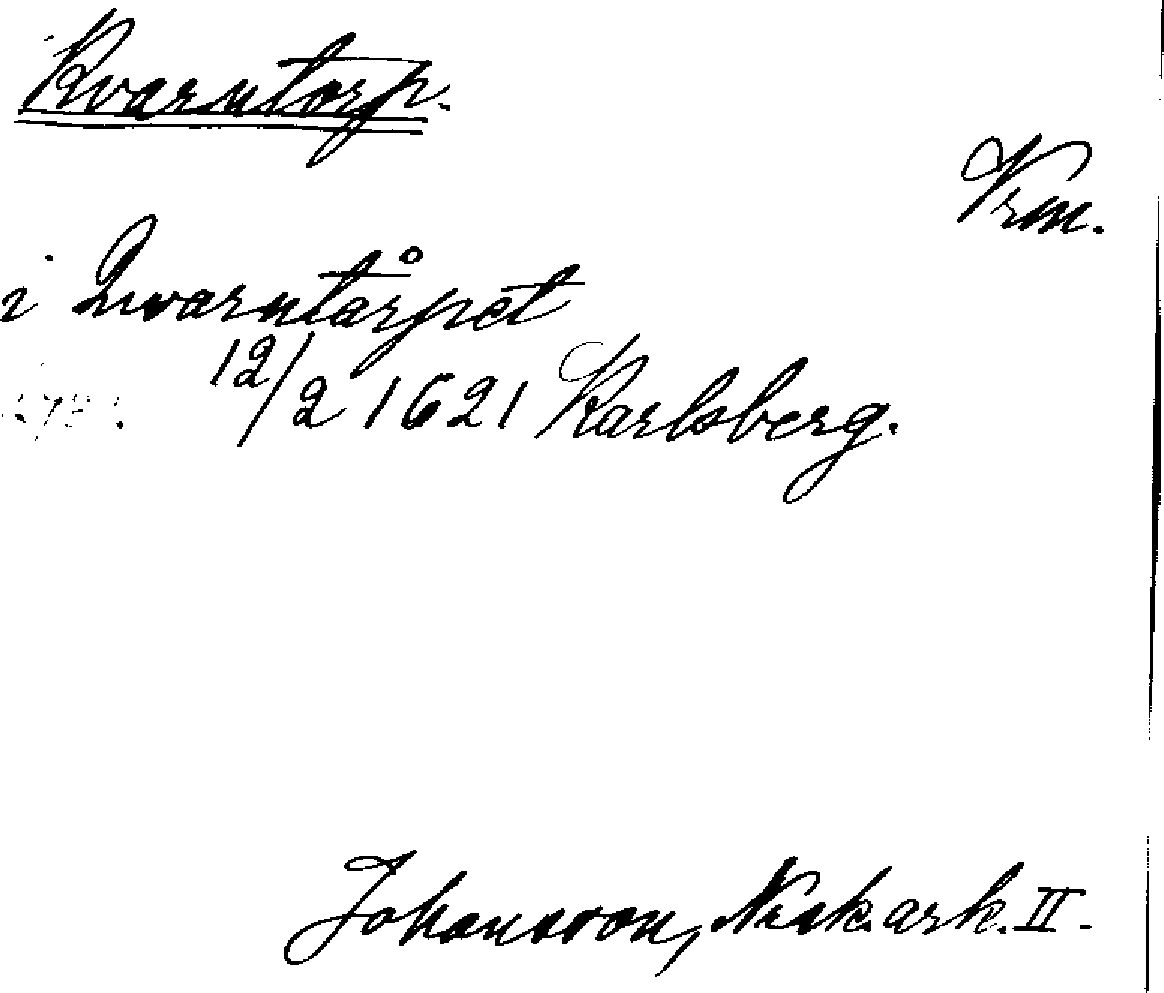 Kvarntorp.
Vrm.
i Qvarntårpet
12/2 1621 Karlsberg.
Johansson, Nisk.ark. II.